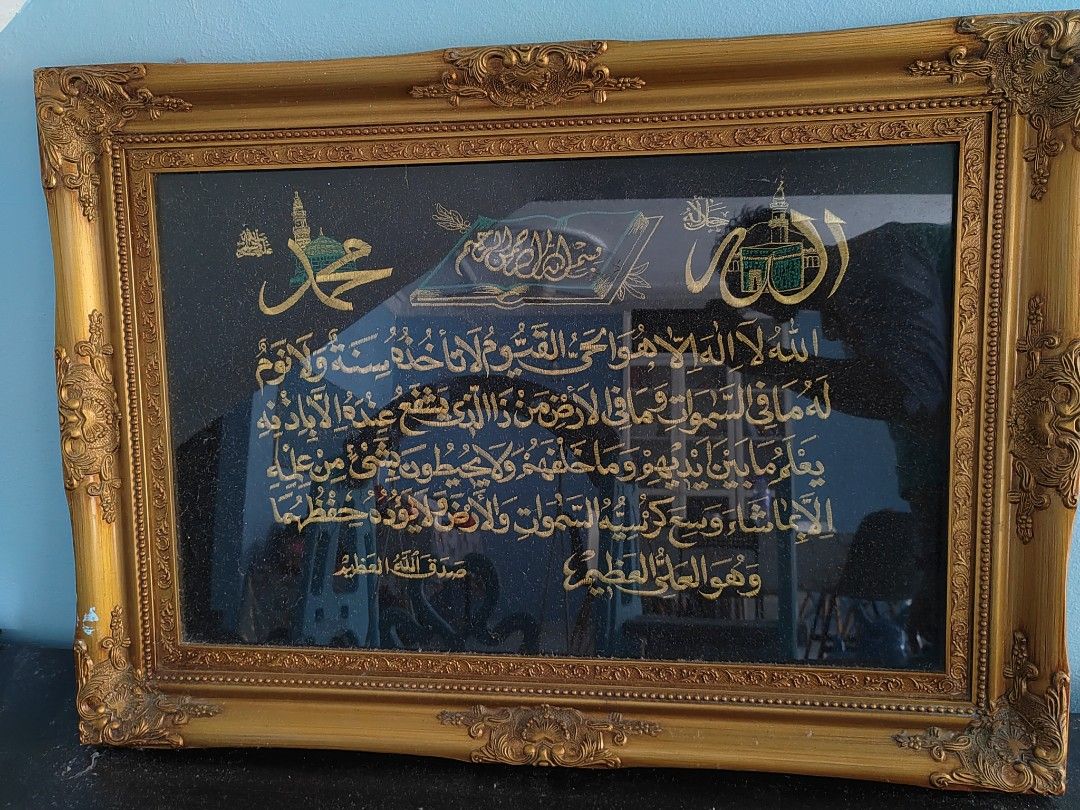 الله جل جلاله
بسم الله الرحمن الرحيم
محمد
اللهُ لَا اِلٰهَ اِلَّا هُوَ الْحَيُّ الْقَيُّومُ لَا تَأْخُذُهُ سِنَةٌ وَلَا نَوْمٌ
لَهُ مَا فِي السَّمٰوَاتِ وَمَا فِي الْاَرْضِ مَنْ ذَا الَّذِي يَشْفَعُ عِنْدَهُ اِلَّا بِاِذْنِهِ
يَعْلَمُ مَا بَيْنَ اَيْدِيهِمْ وَمَا خَلْفَهُمْ وَلَا يُحِيطُونَ بِشَيْءٍ مِنْ عِلْمِهِ
اِلَّا بِمَا شَاءَ وَسِعَ كُرْسِيُّهُ السَّمٰوَاتِ وَالْاَرْضَ وَلَا يَؤُدُهُ حِفْظُهُمَا
وَهُوَ الْعَلِيُّ الْعَظِيمُ
صَدَقَ اللهُ الْعَظِيمُ